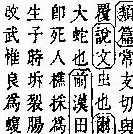 類篇常支切
覆說文虫也
大蛇也前漢田
即死人樵採爲
生子裂腸
改武惟良爲蝮